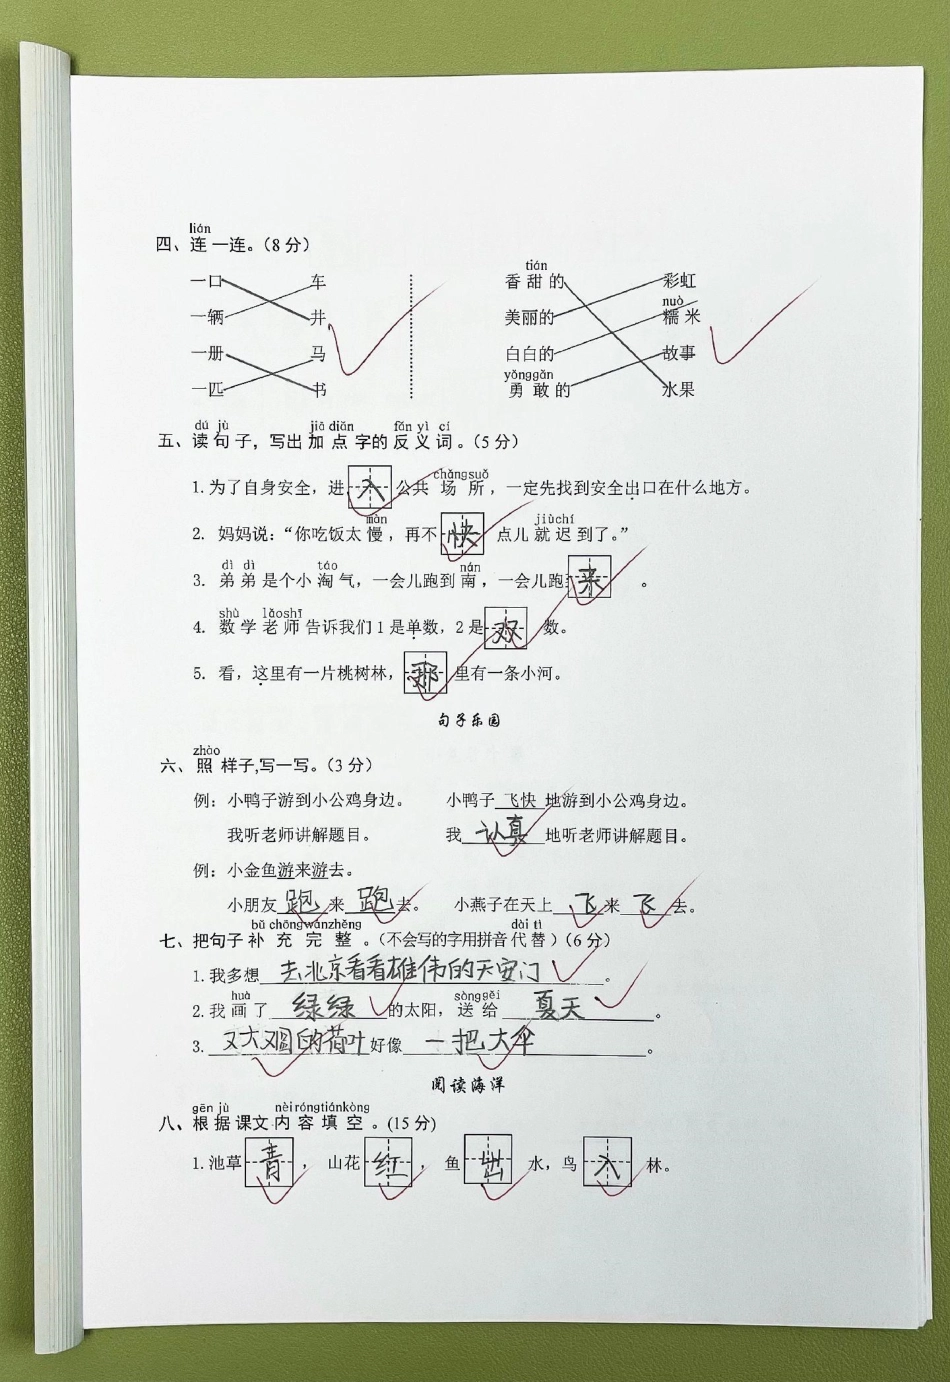 lián
四、连一连。（8 分）
tián
一口 车 香甜的 彩虹
nuò
一辆 井 美丽的 糯米
一册 马 白白的 故事
yǒnggǎn
一匹 书 勇敢的 水果
dú jù jiā diǎn fǎn yì cí
五、读句子，写出加点字的反义词。（5 分）
chǎngsuǒ
1.为了自身安全，进入公共场所，一定先找到安全出口在什么地方。
màn jiùchí
2. 妈妈说：“你吃饭太慢，再不快点儿就迟到了。”
dì dì táo nán
3. 弟弟是个小淘气，一会儿跑到南，一会儿跑 来 。
shù lǎoshī
4. 数学老师告诉我们 1 是单数，2 是双数。
5. 看，这里有一片桃树林，那里有一条小河。
句子乐园
zhào
六、照样子,写一写。（3 分）
例：小鸭子游到小公鸡身边。 小鸭子飞快地游到小公鸡身边。
我听老师讲解题目。 我认真地听老师讲解题目。
例：小金鱼游来游去。
小朋友跑来跑去。 小燕子在天上飞来飞去。
bǔ chōngwánzhěng dài tì
七、把句子补充完整。（不会写的字用拼音代替）（6 分）
1.我多想去北京看看雄伟的天安门。
huà sònggěi
2.我画了绿绿的太阳，送给夏天。
3.又大又圆的荷叶好像一把大伞。
阅读海洋
gēn jù nèiróngtiánkòng
八、根据课文内容填空。(15 分)
1.池草青， 山花红， 鱼出水，鸟入林。